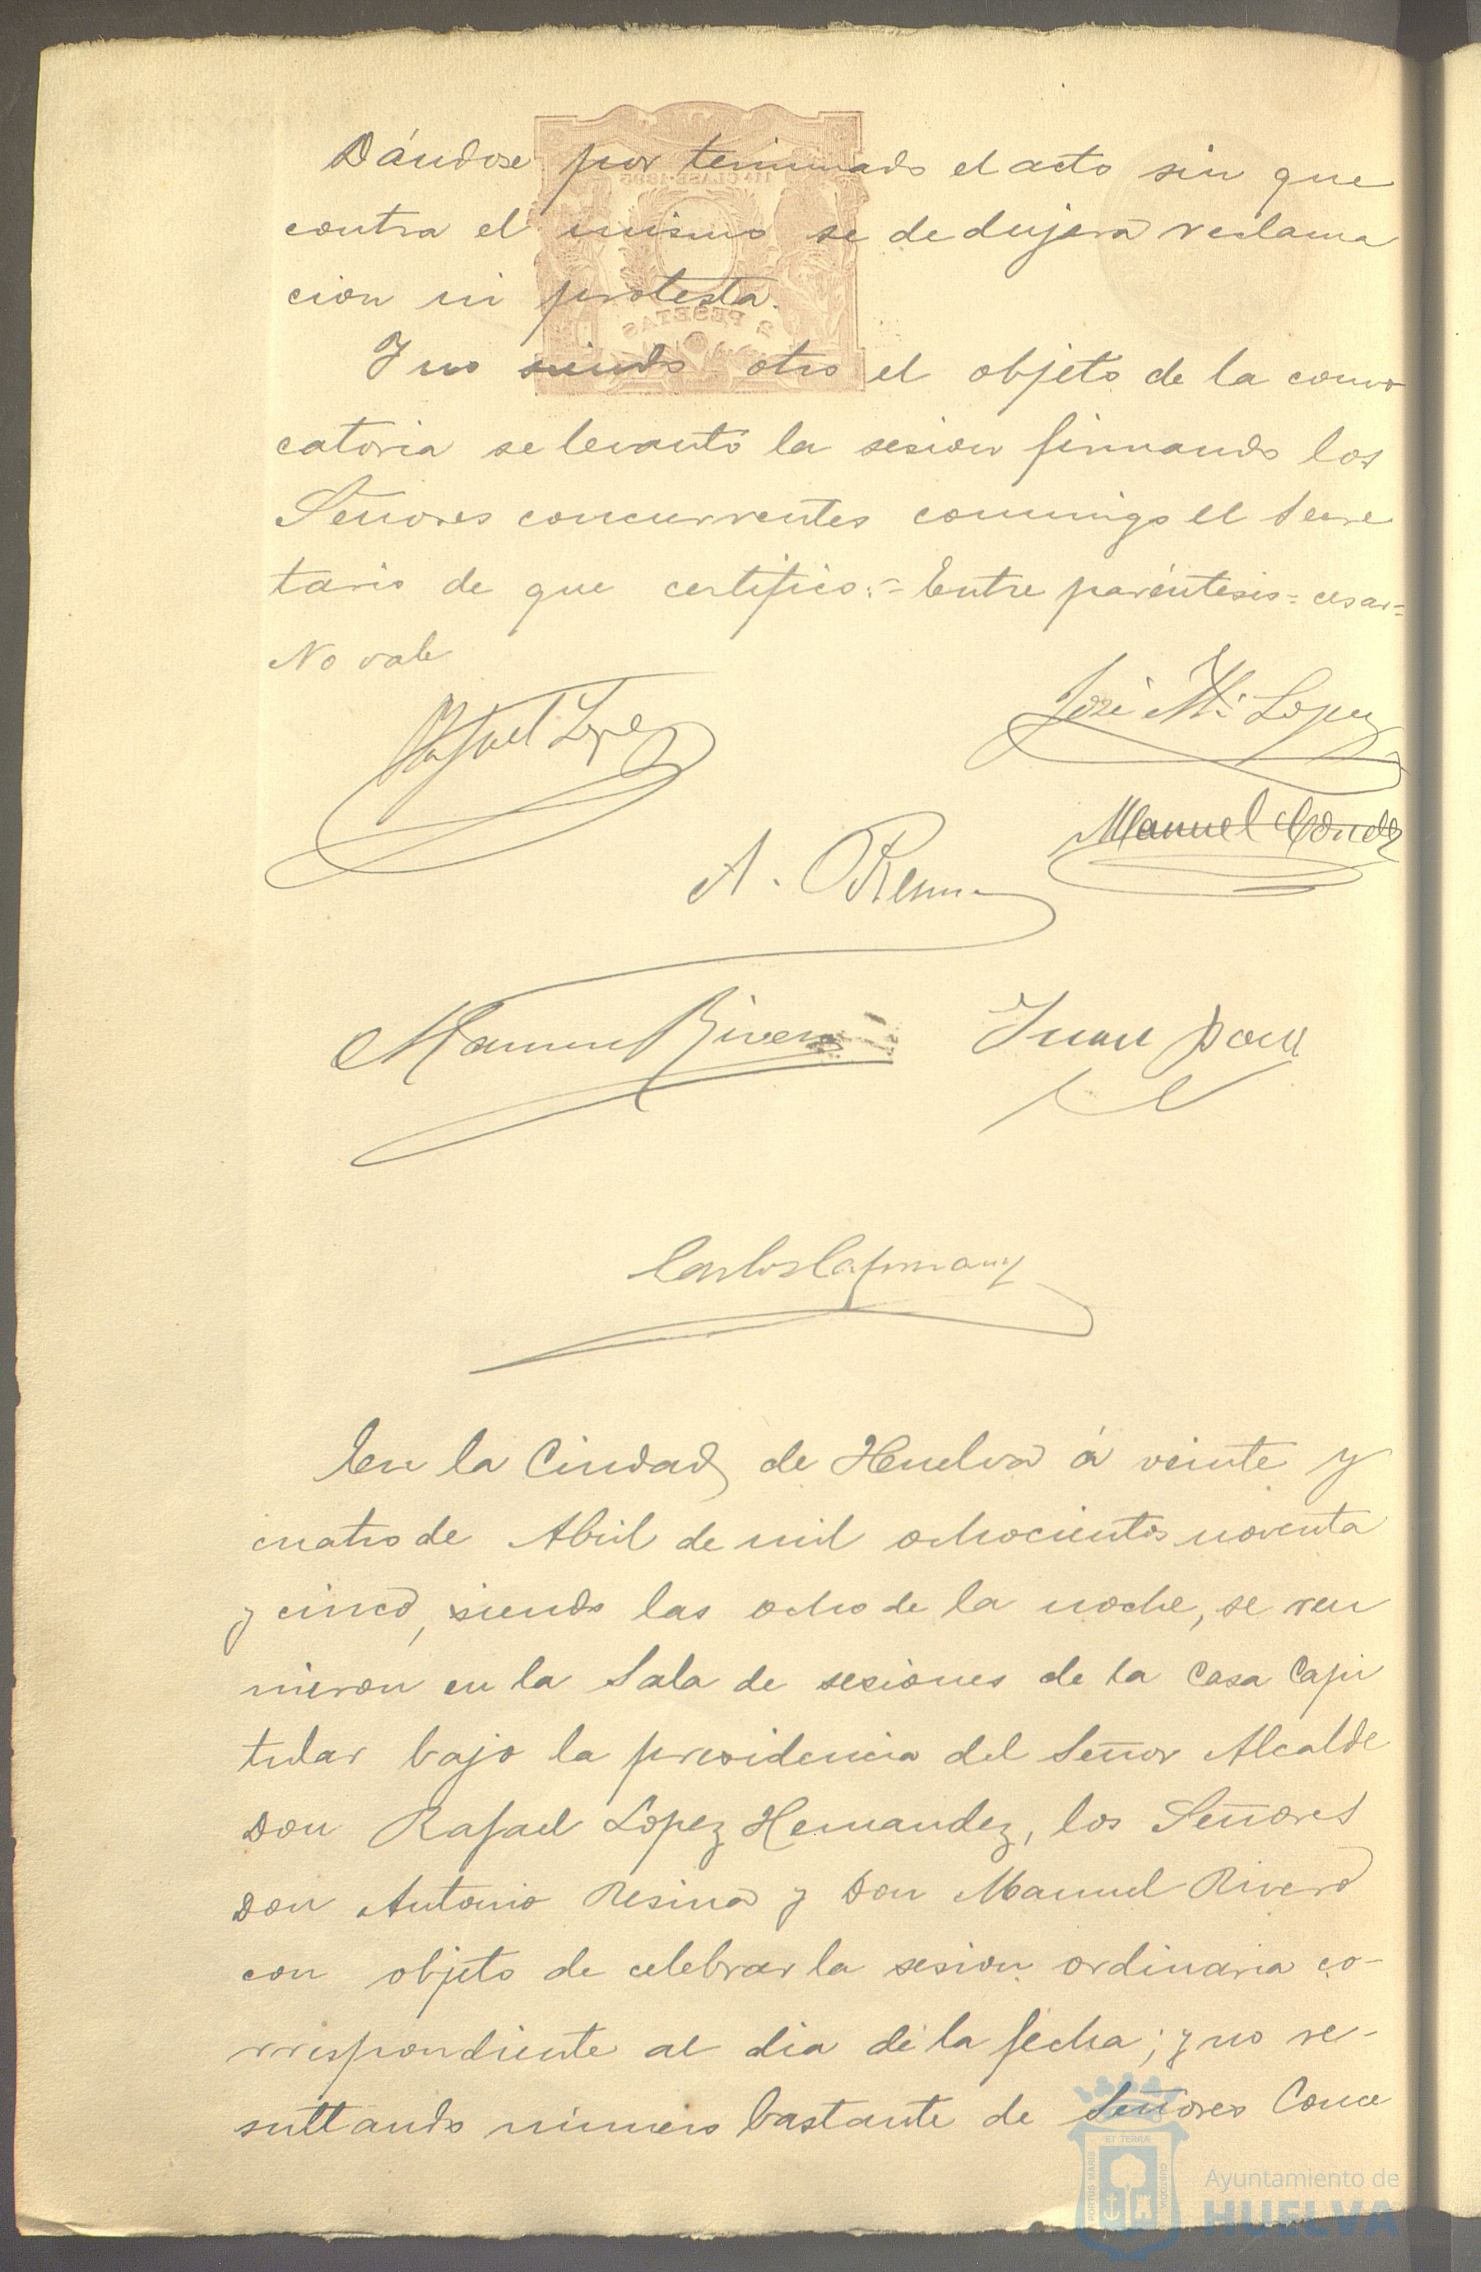 Dándose por terminado el acto sin que
contra el mismo se dedujera reclama
cion ni protesta.
Y no siendo otro el objeto de la convo
catoria se levantó la sesion firmando los
Señores concurrentes conmigo el Secre
tario de que certifico.= Entre paréntesis= cesar=
No vale
Rafael Lopez
José Mª Lopez
Manuel Conde
A. Resina
Manuel Rivero
Juan
Carlos Capmany
En la Ciudad de Huelva á veinte y
cuatro de Abril de mil ochocientos noventa
y cinco, siendo las ocho de la noche, se reu
nieron en la Sala de sesiones de la Casa Capi
tular bajo la presidencia del Señor Alcalde
Don Rafael Lopez Hernandez, los Señores
Don Antonio Resina y Don Manuel Rivero
con objeto de celebrar la sesion ordinaria co-
rrespondiente al dia de la fecha; y no re-
sultando número bastante de Señores Conce
PORTUS MARIS
ET TERRÆ
CUSTODIA
Ayuntamiento de
HUELVA